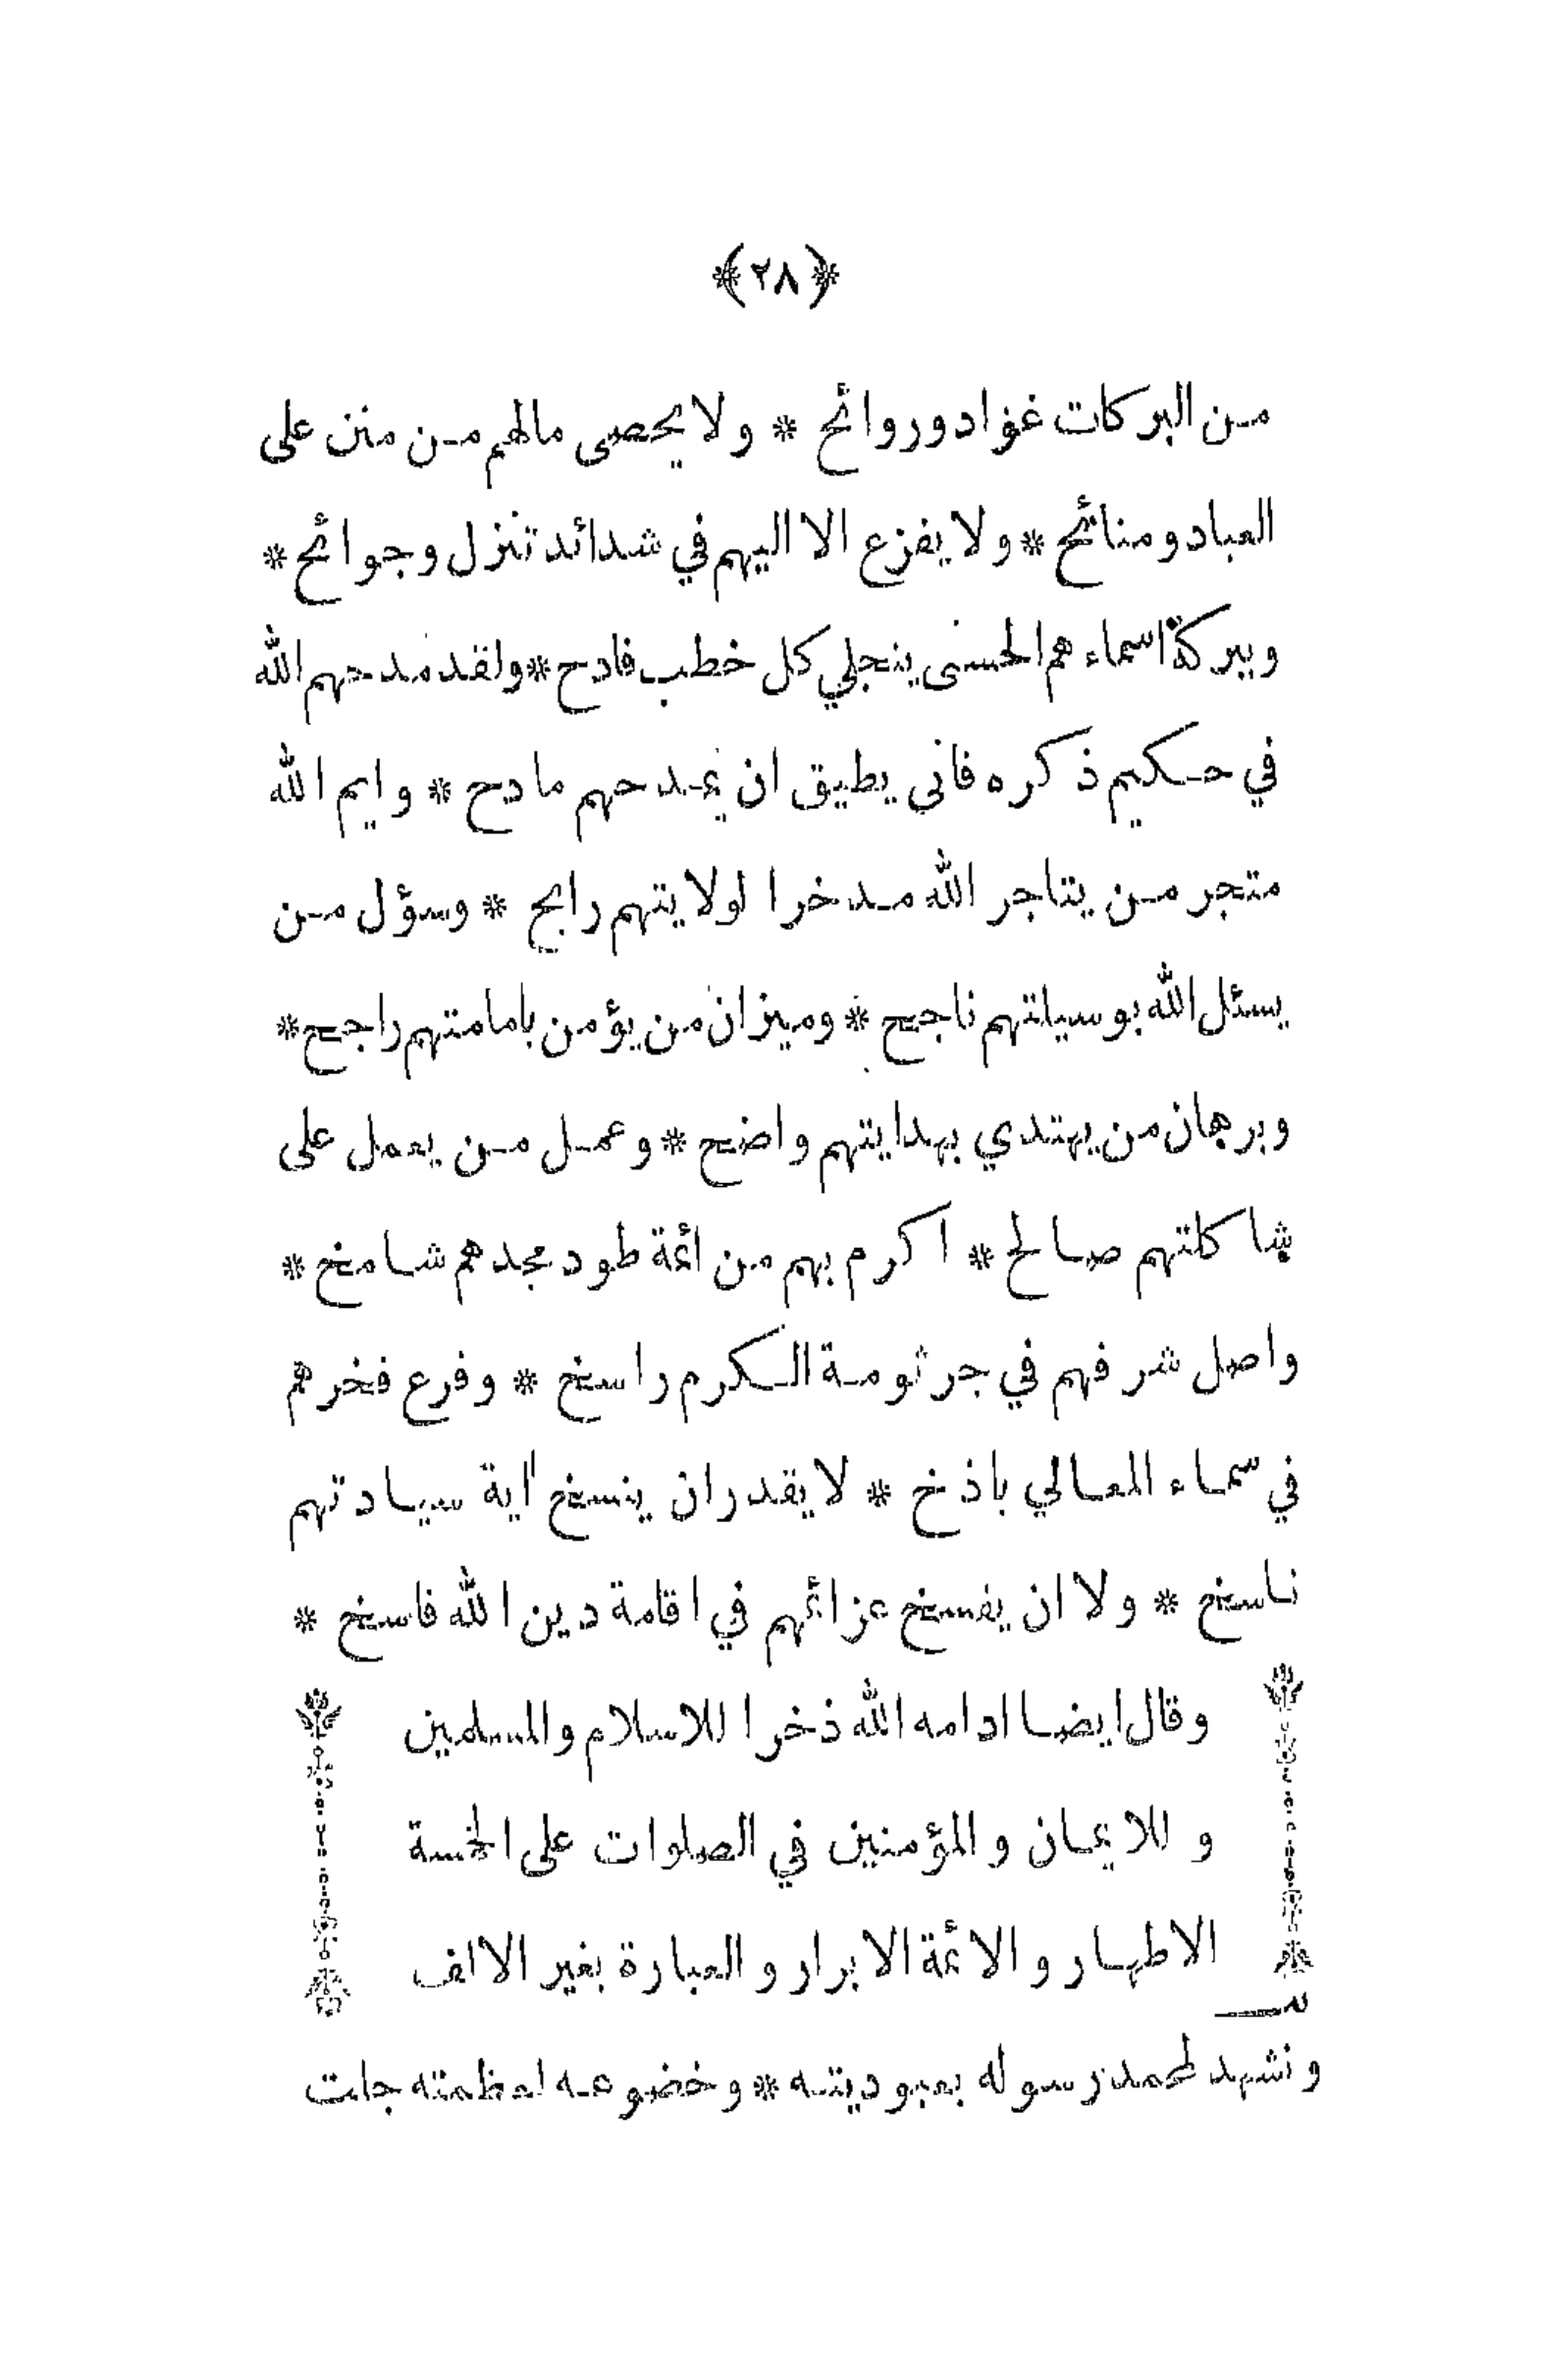 ﴿٢٨﴾
من البركات غواد وروائح * ولا يحصى مالهم من منن على
العباد ومنائح * ولا يفزع الا اليهم في شدائد تنزل وجوائح *
وببركة اسماءهم الحسنى ينجلي كل خطب فادح * ولقد مدحهم الله
في حكيم ذكره فانى يطيق ان يمدحهم مادح * وايم الله
متجر من يتاجر الله مدخرا لولايتهم رابح * وسؤل من
يسئل الله بوسيلتهم ناجح * وميزان من يؤمن بامامتهم راجح *
وبرهان من يهتدي بهدايتهم واضح * وعمل من يعمل على
شاكلتهم صالح * اكرم بهم من ائمة طود مجدهم شامخ *
واصل شرفهم في جرثومة الكرم راسخ * وفرع فخرهم
في سماء المعالي باذخ * لا يقدر ان ينسخ آية سيادتهم
ناسخ * ولا ان يفسخ عزائمهم في اقامة دين الله فاسخ *
وقال ايضا ادامه الله ذخرا للاسلام والمسلمين
وللايمان والمؤمنين في الصلوات على الخمسة
الاطهار والائمة الابرار والعبارة بغير الالف
ونشهد لمحمد رسوله بعبوديته * وخضوعه لعظمته جلت